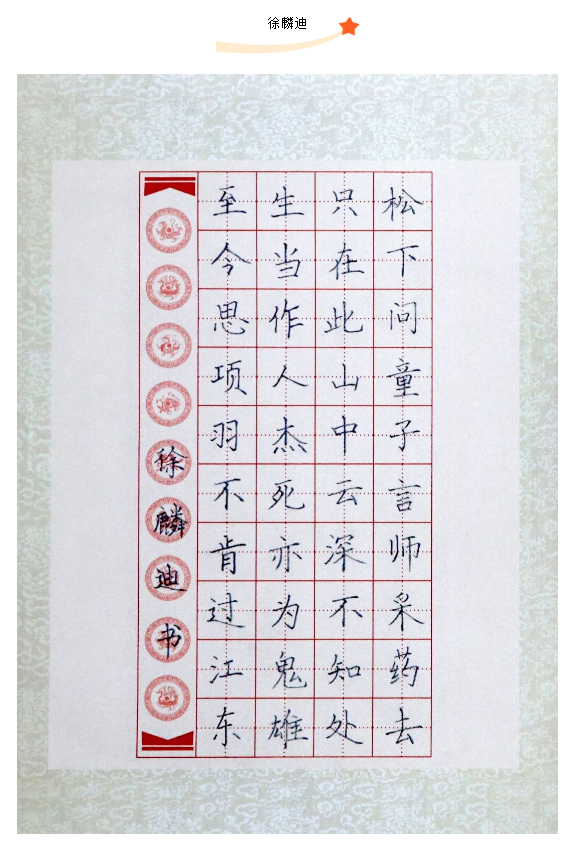 徐麟迪
松下问童子言师采药去
只在此山中云深不知处
生当作人杰死亦为鬼雄
至今思项羽不肯过江东
徐麟迪书